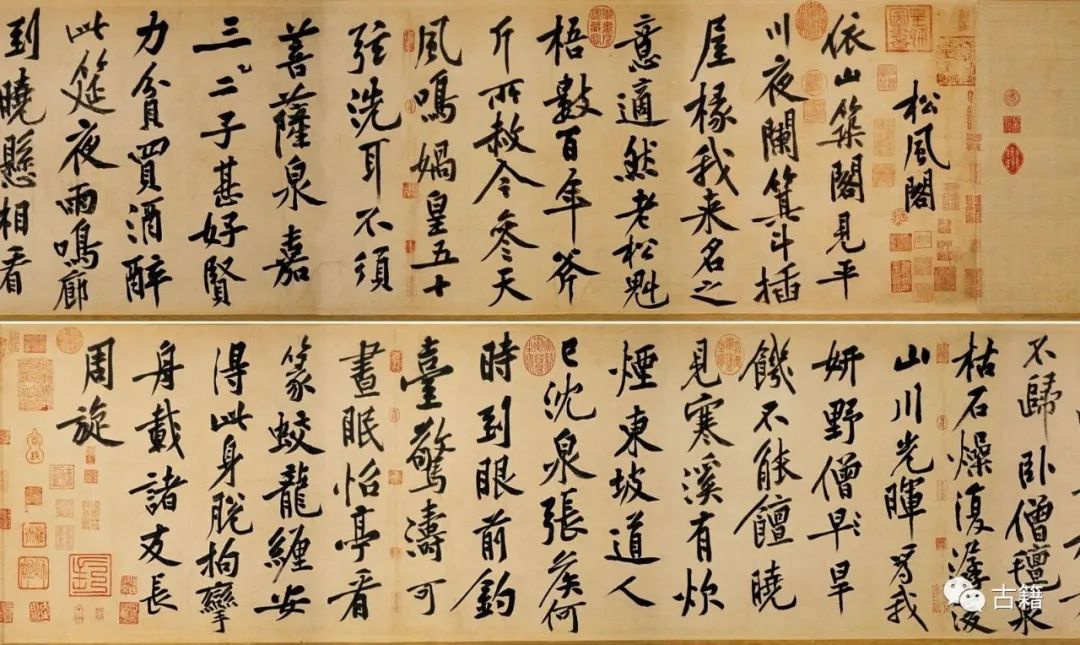 松風閣
依山築閣見平
川夜闌箕斗插
屋椽我来名之
意適然老松魁
梧數百年斧
斤所赦今參天
風鳴媧皇五十
弦洗耳不須
菩薩泉嘉
三二子甚好賢
力貧買酒醉
此筵夜雨鳴廊
到曉懸相看
不歸臥僧氈泉
枯石燥復潺湲
山川光暉為我
妍野僧早旱
饑不能饘曉
見寒溪有炊
煙東坡道人
已沈泉張侯何
時到眼前釣
臺驚濤可
晝眠怡亭看
篆蛟龍纏安
得此身脫拘攣
舟載諸友長
周旋
古籍